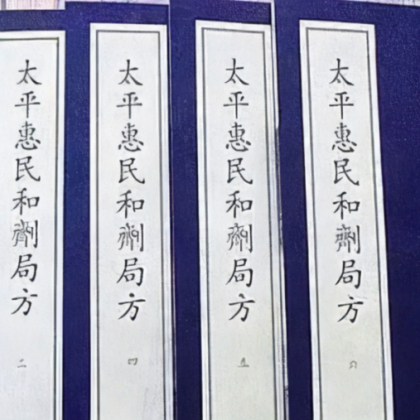 太平惠民和劑局方 二
太平惠民和劑局方 四
太平惠民和劑局方 五
太平惠民和劑局方 六